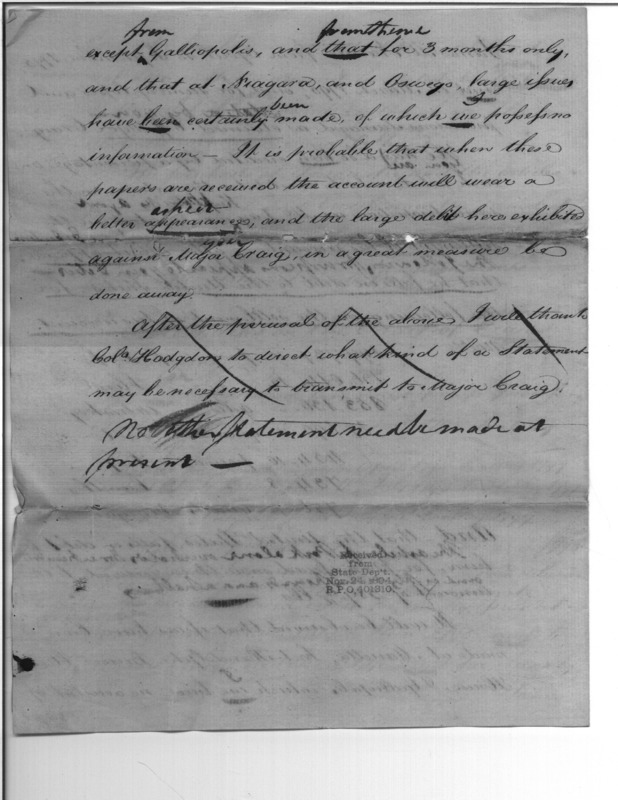 from from thence
except Galliopolis, and that for 3 months only,
and that at Niagara, and Oswego, large issues
been I
have been certainly made, of which we possess no
information — It is probable that when these
papers are received the account will wear a
aspect
better appearance, and the large debit here exhibited
you
against Major Craig, in a great measure be
done away.
After the perusal of the above I will thank
Colo. Hodgdon to direct what kind of a Statement
may be necessary to transmit to Major Craig.
No other Statement need be made at
present —
Received
from
State Dep't.
Nov. 24, 1894
R.P.O. 401310